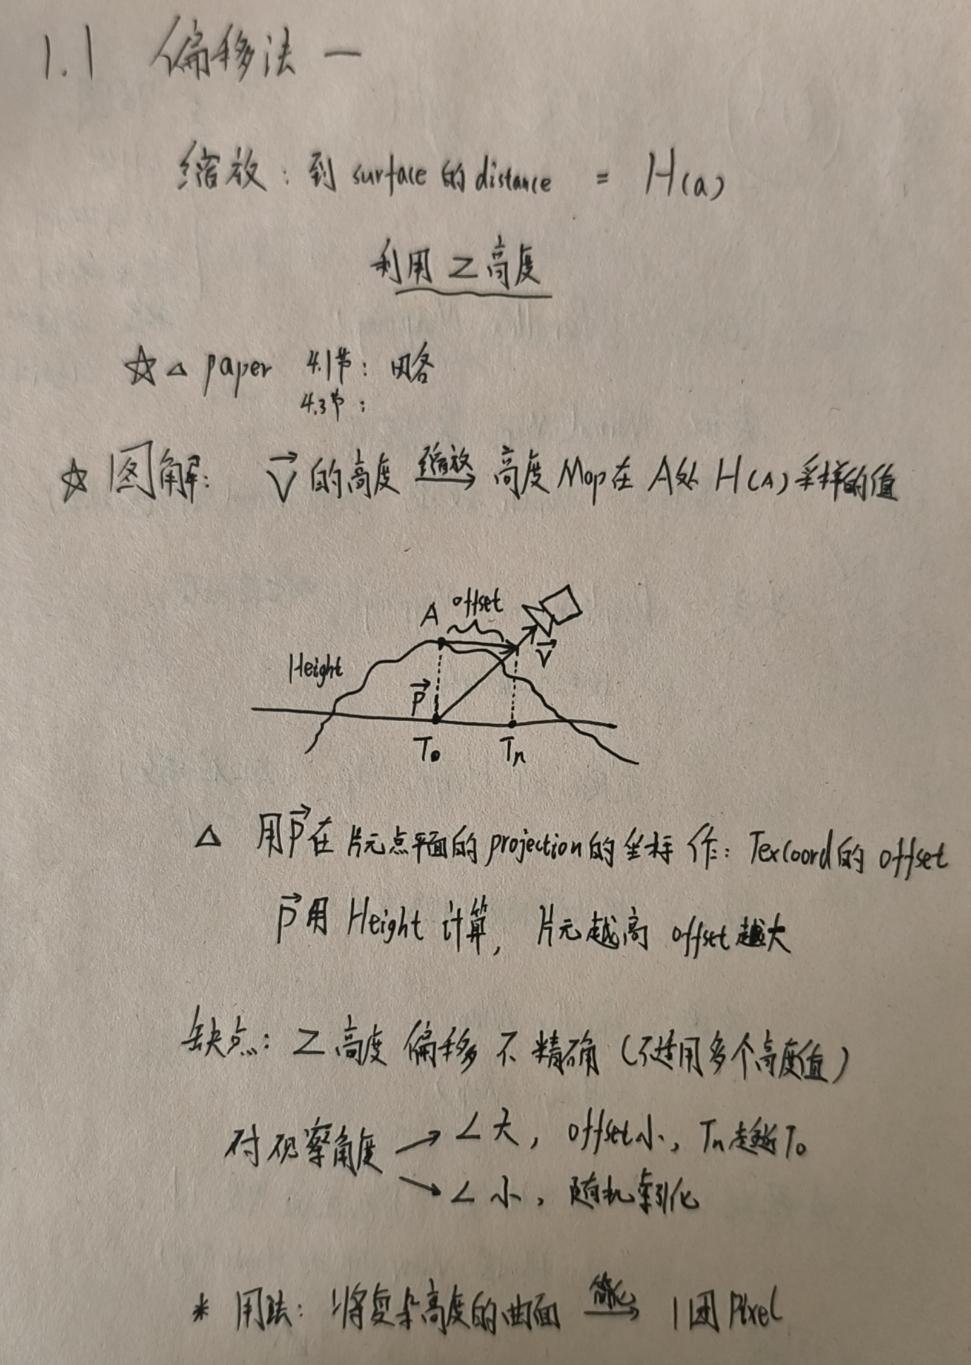 1.1 偏移法一
缩放：到 surface 的 distance = H(a)
利用 Z 高度
☆△ paper 4.1节：略
4.3节：
☆ 图解： V 的高度 缩放→ 高度 Map 在 A处 H(A) 采样的值
A offset
V
Height
P
T₀ Tn
△ 用P在片元点平面的 projection 的坐标 作： TexCoord 的 offset
P用 Height 计算，片元越高 offset 越大
缺点：Z 高度 偏移 不 精确（不适用多个高度值）
对观察角度 → ∠大，offset小，Tn趋近T₀
→ ∠小，随机
* 用法：将复杂高度的曲面 简化→ 1团 Pixel